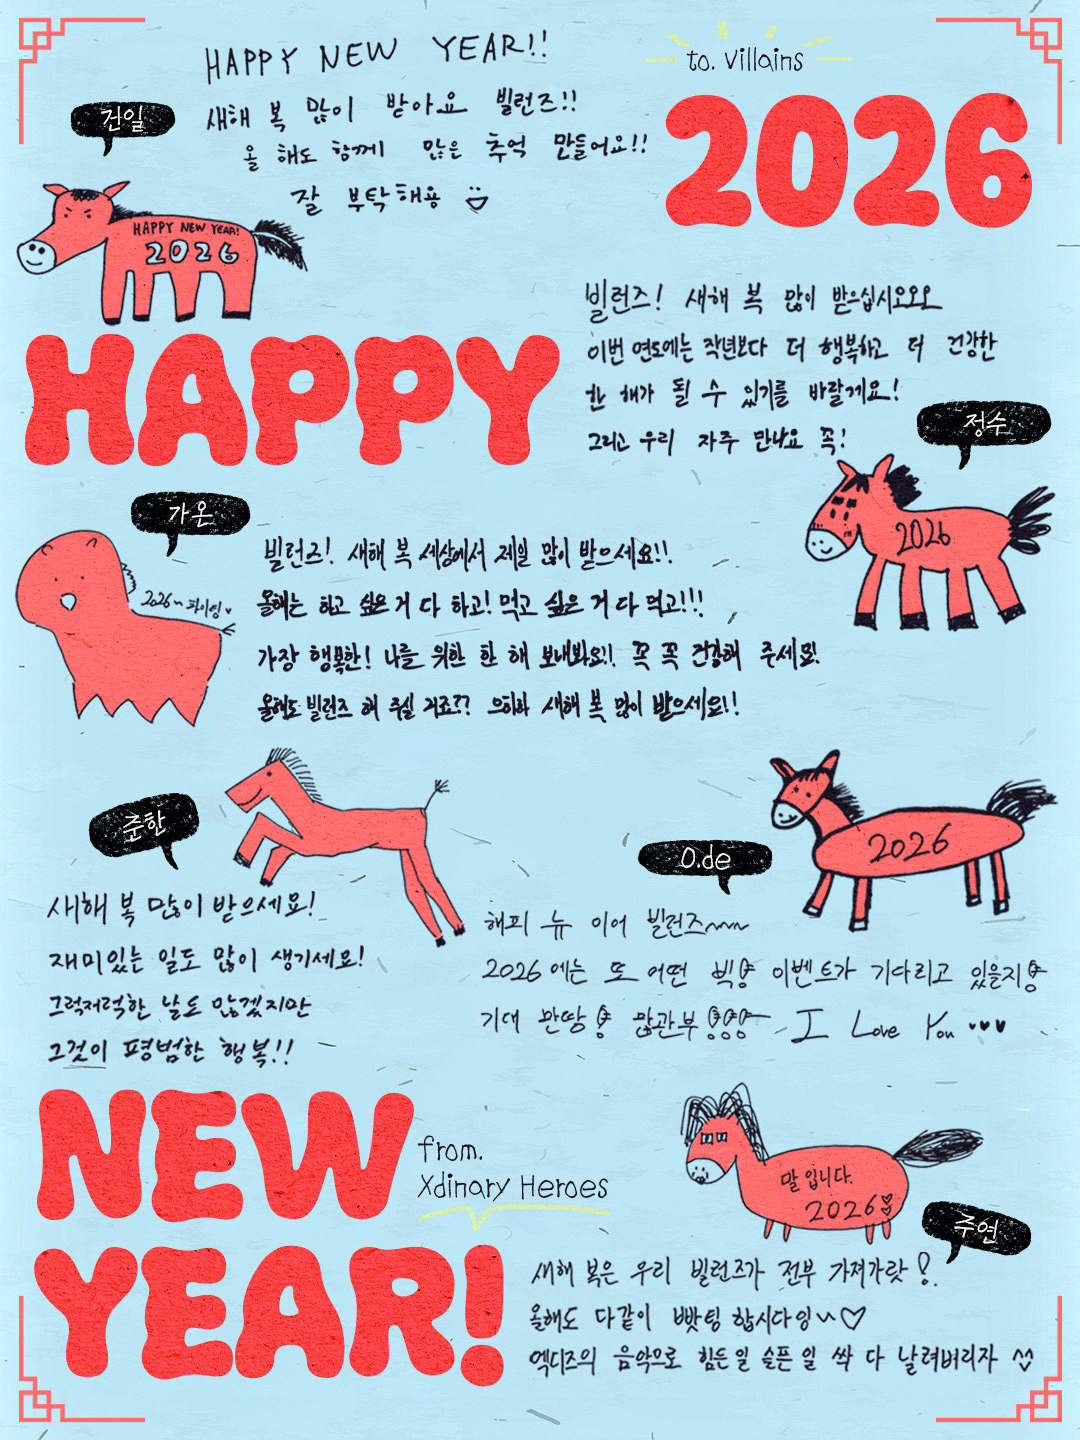 HAPPY NEW YEAR!!
새해 복 많이 받아요 빌런즈!!
올 해도 함께 많은 추억 만들어요!!
잘 부탁해용
to. Villains
2026
건일
HAPPY NEW YEAR!
2026
HAPPY
빌런즈! 새해 복 많이 받으십시오오오
이번 연도에는 작년보다 더 행복하고 더 건강한
한 해가 될 수 있기를 바랄게요!
그리고 우리 자주 만나요 꼭!
정수
2026
가온
2026~ 파이팅
빌런즈! 새해 복 세상에서 제일 많이 받으세요!!
올해는 하고 싶은 거 다 하고! 먹고 싶은 거 다 먹고!!!
가장 행복한! 나를 위한 한 해 보내봐요!! 꼭 꼭 건강해 주세요!
올해도 빌런즈 해 주실 거죠?? 으히하 새해 복 많이 받으세요!!
준한
새해 복 많이 받으세요!
재미있는 일도 많이 생기세요!
그럭저럭한 날도 많겠지만
그것이 평범한 행복!!
O.de
2026
해피 뉴 이어 빌런즈~~~
2026에는 또 어떤 빅 이벤트가 기다리고 있을지
기대 만땅! 많관부!!! I Love You ♥♥♥
NEW
YEAR!
from.
Xdinary Heroes
말입니다.
2026
주연
새해 복은 우리 빌런즈가 전부 가져가랏!
올해도 다같이 빳팅 합시다잉~♡
엑디즈의 음악으로 힘든 일 슬픈 일 싹 다 날려버리자 ^^